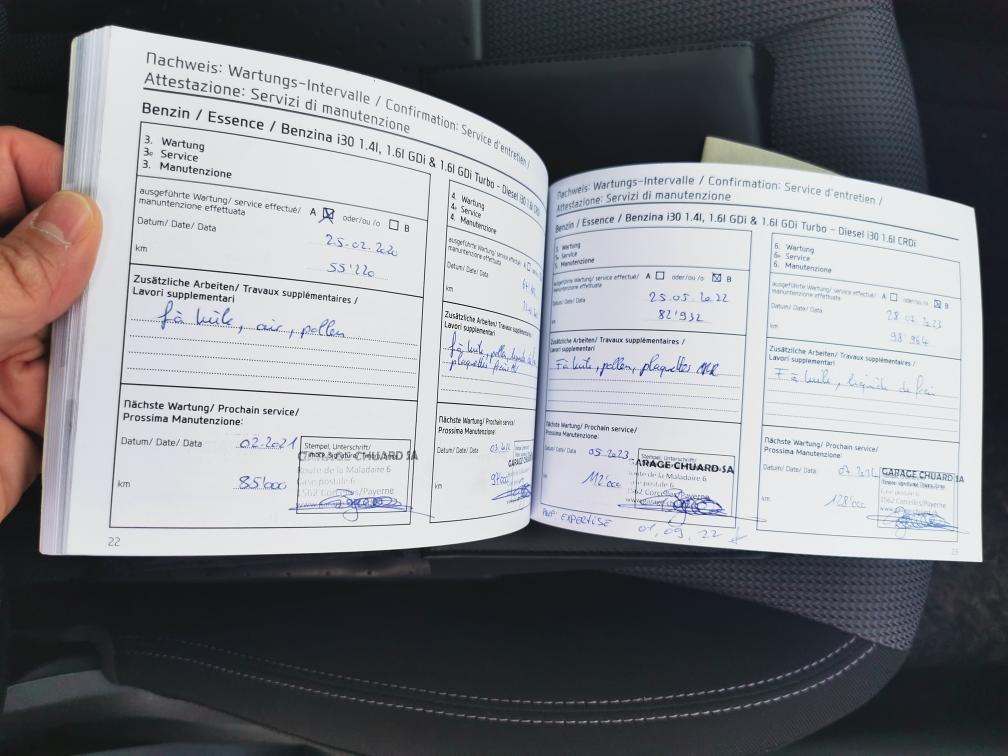 Nachweis: Wartungs-Intervalle / Confirmation: Service d'entretien /
Attestazione: Servizi di manutenzione
Benzin / Essence / Benzina i30 1.4l, 1.6l GDi & 1.6l GDi Turbo - Diesel i30 1.6l CRDi
3. Wartung
3e Service
3. Manutenzione
ausgeführte Wartung/ service effectué/ A ☒ oder/ou /o ☐ B
manuntenzione effettuata
Datum/ Date/ Data 25.02.2020
km 55'220
Zusätzliche Arbeiten/ Travaux supplémentaires /
Lavori supplementari
Fà huile, air, pollen
Nächste Wartung/ Prochain service/
Prossima Manutenzione:
Datum/ Date/ Data 02.2021
km 85'000
Stempel, Unterschrift/
GARAGE CHUARD SA
Route de la Maladaire 6
Case postale 6
1562 Corcelles/Payerne
22
4. Wartung
4e Service
4. Manutenzione
ausgeführte Wartung/
manuntenzione effettuata
Datum/ Date/ Data
km
Zusätzliche Arbeiten/ Travaux
Lavori supplementari
Fà huile, pollen, liquide de
plaquettes
Nächste Wartung/ Prochain service/
Prossima Manutenzione:
Datum/ Date/ Data
km 97'000
GARAGE
Nachweis: Wartungs-Intervalle / Confirmation: Service d'entretien /
Attestazione: Servizi di manutenzione
Benzin / Essence / Benzina i30 1.4l, 1.6l GDi & 1.6l GDi Turbo - Diesel i30 1.6l CRDi
5. Wartung
5e Service
5. Manutenzione
ausgeführte Wartung/ service effectué/ A ☐ oder/ou /o ☒ B
manuntenzione effettuata
Datum/ Date/ Data 25.05.2022
km 82'932
Zusätzliche Arbeiten/ Travaux supplémentaires /
Lavori supplementari
Fà huile, pollen, plaquettes
Nächste Wartung/ Prochain service/
Prossima Manutenzione:
Datum/ Date/ Data 05.2023
km 112'000
Stempel, Unterschrift/
GARAGE CHUARD SA
Route de la Maladaire 6
Case postale 6
1562 Corcelles/Payerne
EXPERTISE 01.09.22
6. Wartung
6e Service
6. Manutenzione
ausgeführte Wartung/ service effectué/ A ☐ oder/ou /o ☒ B
manuntenzione effettuata
Datum/ Date/ Data 28.07.2023
km 98'964
Zusätzliche Arbeiten/ Travaux supplémentaires /
Lavori supplementari
Fà huile, liquide de frein
Nächste Wartung/ Prochain service/
Prossima Manutenzione:
Datum/ Date/ Data
km 128'000
GARAGE CHUARD SA
Case postale 6
1562 Corcelles/Payerne
23